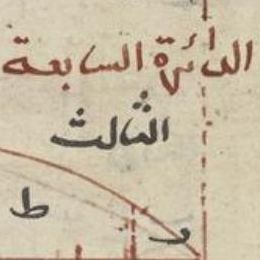 الدائرة السابعة
الثالث
ط
د